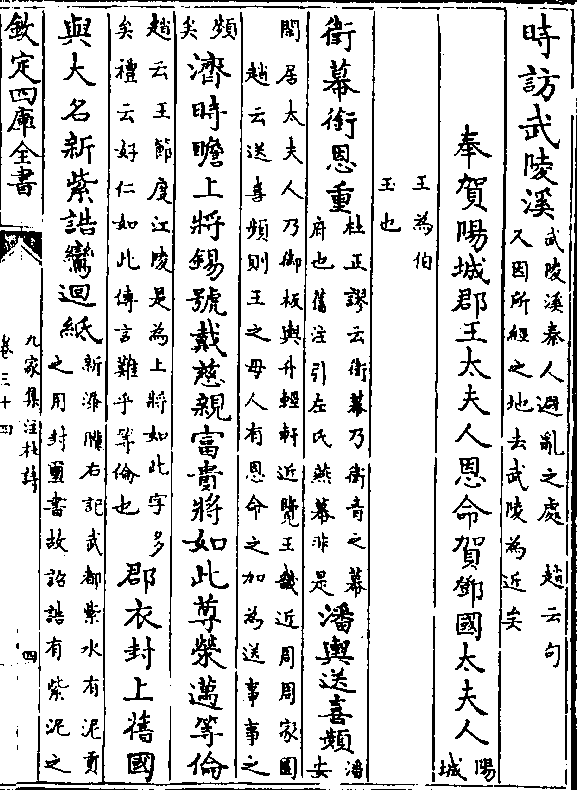 時訪武陵溪武陵溪秦人避亂之處　趙云句
又因所經之地去武陵為近矣
奉賀陽城郡王太夫人恩命賀鄧國太夫人陽
城
王為伯
玉也
衛幕銜恩重杜正謬云衛幕乃衛青之幕
府也舊注引左氏燕幕非是
潘輿送喜頻潘安
閒居太夫人乃御板輿升輕軒近覽王畿近周周家園
趙云送喜頻則王之母人有恩命之加為送事事之
頻
矣
濟時瞻上將錫號戴慈親富貴將如此尊榮邁等倫
趙云王節度江陵是為上將如此字多
矣禮云好仁如此傳言難乎等倫也
郡衣封上舊國
與大名新紫誥鸞迴紙新添隴右記武都紫水有泥貢
之用封璽書故詔誥有紫泥之
欽定四庫全書
九家集注杜詩
卷三十四
四